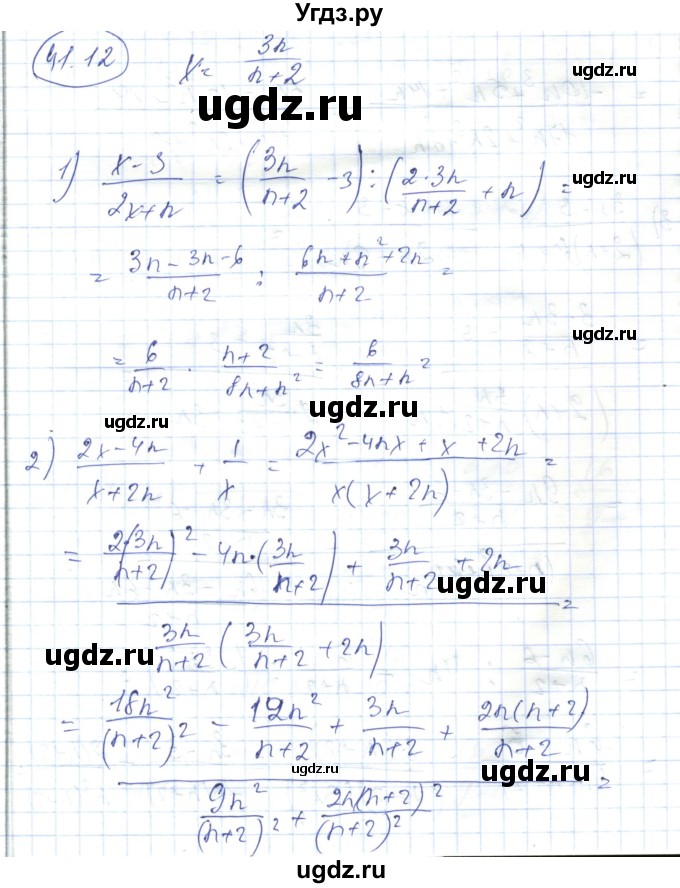 Угдз.ру
41.12 x = 3n/(n+2)
ugdz.ru ugdz.ru
1) (x-3)/(2x+n) = (3n/(n+2) - 3) : ((2·3n)/(n+2) + n) =
ugdz.ru
= (3n-3n-6)/(n+2) : (6n+n²+2n)/(n+2) =
ugdz.ru
= 6/(n+2) · (n+2)/(8n+n²) = 6/(8n+n²)
ugdz.ru
ugdz.ru
2) (2x-4n)/(x+2n) + 1/x = (2x²-4nx+x+2n)/(x(x+2n)) =
ugdz.ru
= (2(3n/(n+2))² - 4n·(3n/(n+2)) + 3n/(n+2) + 2n)/(3n/(n+2) (3n/(n+2) + 2n)) =
ugdz.ru
ugdz.ru
= (18n²/(n+2)² - 12n²/(n+2) + 3n/(n+2) + 2n(n+2)/(n+2))/(9n²/(n+2)² + 2n(n+2)²/(n+2)²) =
ugdz.ru
ugdz.ru
ugdz.ru